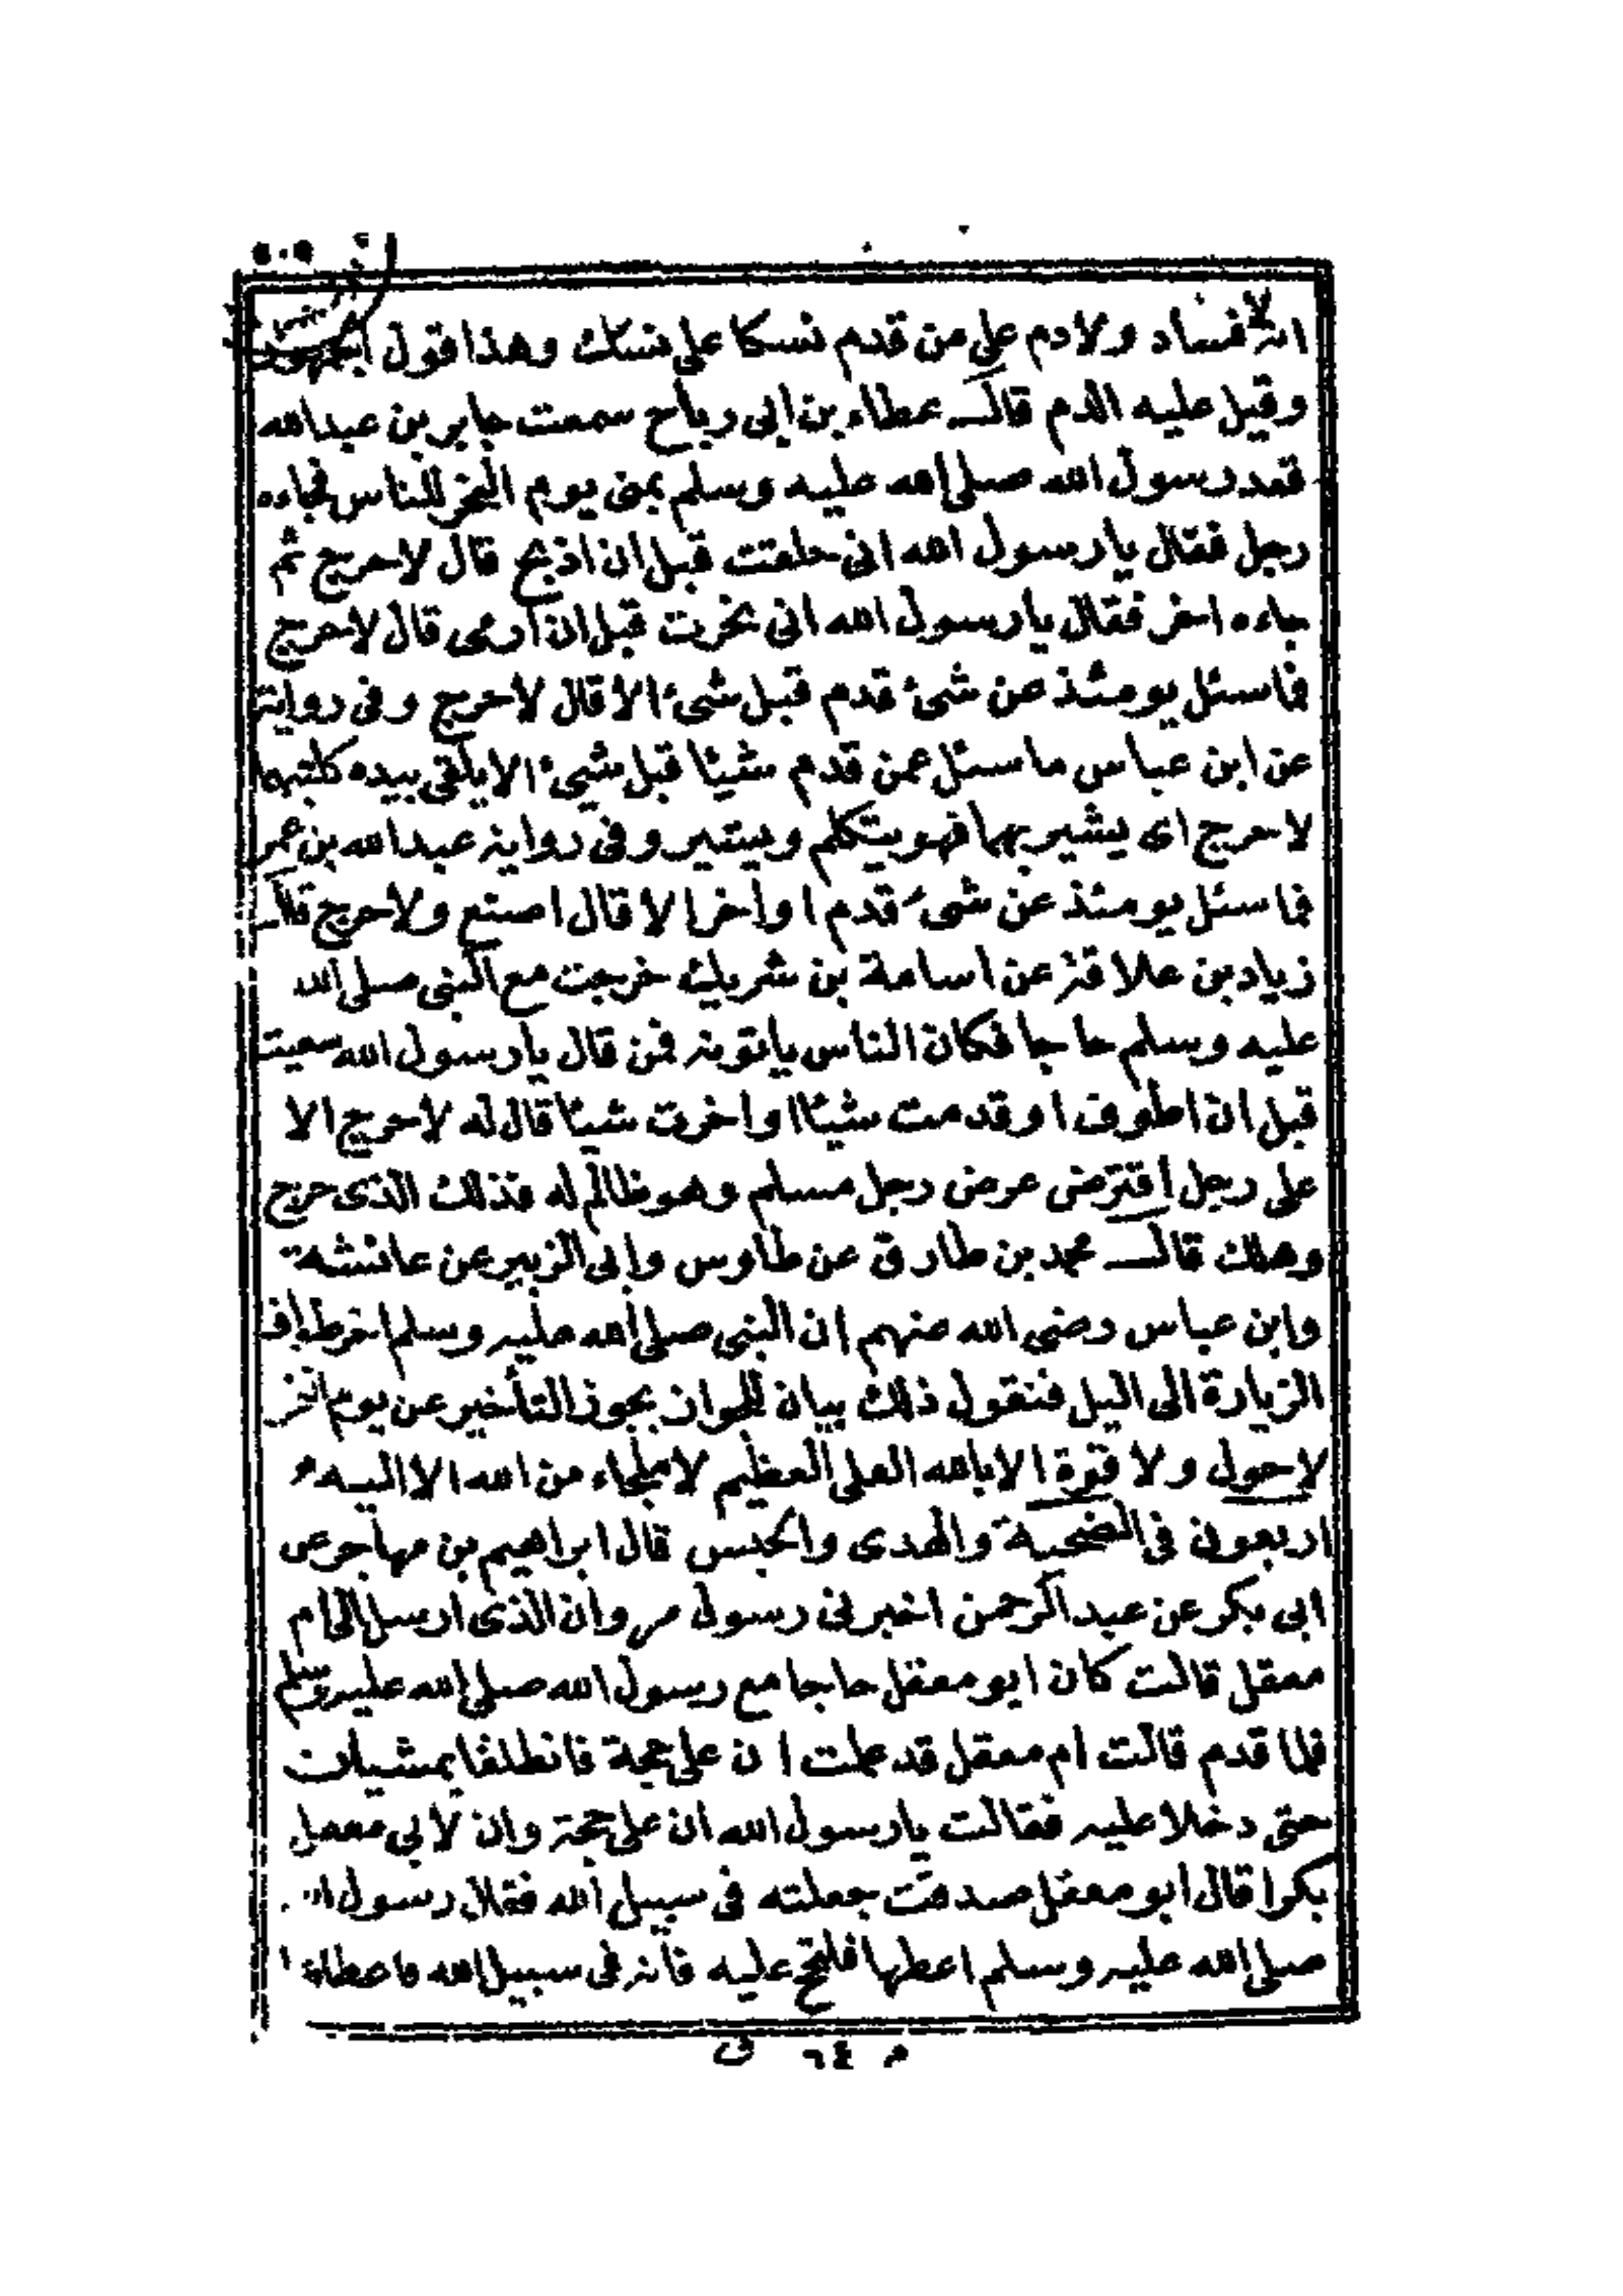 ٥٠٥
انه لا فساد ولا دم على من قدم نسكا على نسك وهذا قول الجمهور
وقيل عليه الدم قال عطاء بن ابى رباح سمعت جابر بن عبدالله
قعد رسول الله صلى الله عليه وسلم بمنى يوم النحر للناس فجاءه
رجل فقال يا رسول الله انى حلقت قبل ان اذبح قال لا حرج ثم
جاءه اخر فقال يا رسول الله انى نحرت قبل ان ارمى قال لا حرج
فما سئل يومئذ عن شئ قدم قبل شئ الا قال لا حرج وفى رواية
عن ابن عباس ما سئل عمن قدم شيئا قبل شئ الا يلقى بيده كلتيهما
لا حرج اى يشير بهما فهو يتكلم ويشير وفى رواية عبدالله بن عمر
فما سئل يومئذ عن شئ قدم او اخر الا قال اصنع ولا حرج قال
زياد بن علاقة عن اسامة بن شريك خرجت مع النبى صلى الله
عليه وسلم حاجا فكان الناس يأتونه فمن قال يا رسول الله سعيت
قبل ان اطوف او قدمت شيئا او اخرت شيئا قال له لا حرج الا
على رجل اقترض عرض رجل مسلم وهو ظالم له فذلك الذى حرج
وهلك قال محمد بن طارق عن طاوس وابى الزبير عن عائشة
وابن عباس رضى الله عنهم ان النبى صلى الله عليه وسلم اخر طواف
الزيارة الى اليل فنقول ذلك بيان للجواز يجوز التأخير عن يوم النحر
لا حول ولا قوة الا بالله العلى العظيم لا ملجاء من الله الا اليه
اربعون فى الضحية والهدى والحبس قال ابراهيم بن مهاجر عن
ابى بكر عن عبد الرحمن اخبرنى رسول مروان الذى ارسل الى ام
معقل قالت كان ابو معقل حاجا مع رسول الله صلى الله عليه وسلم
فلما قدم قالت ام معقل قد علمت ان على حجة فانطلقا يمشيان
حتى دخلا عليه فقالت يا رسول الله ان على حجة وان لابى معقل
بكرا قال ابو معقل صدقت جعلته فى سبيل الله فقال رسول الله
صلى الله عليه وسلم اعطها فلتحج عليه فانه فى سبيل الله فاعطاها
م ٦٤ ق